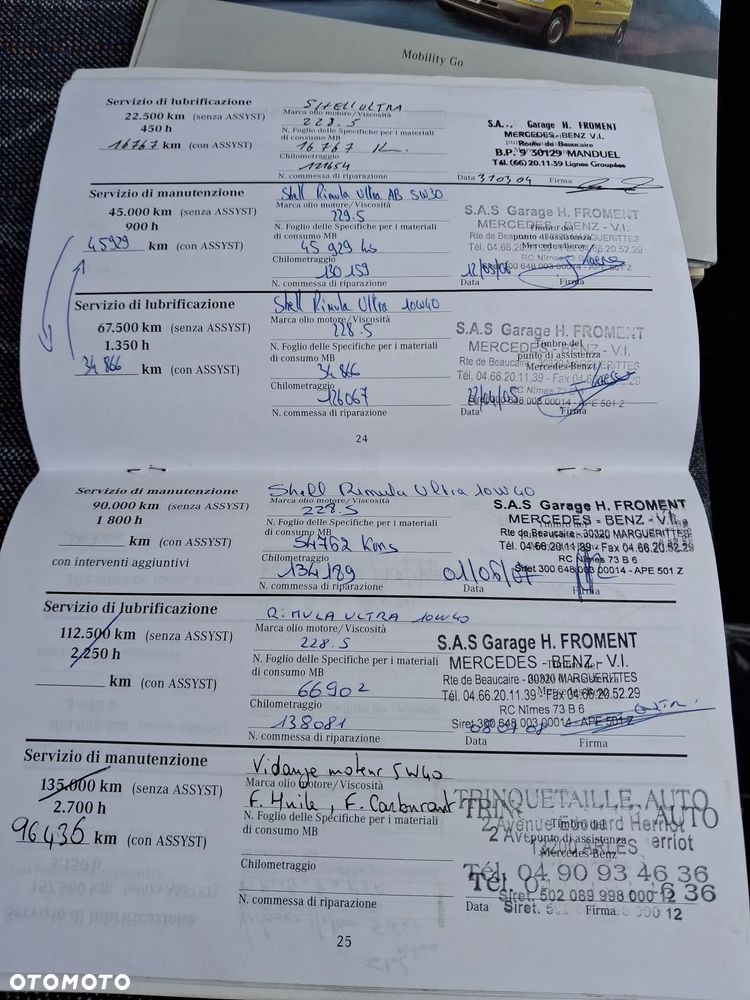 Mobility Go
Servizio di lubrificazione
22.500 km (senza ASSYST)
450 h
16767 km (con ASSYST)
SHELL ULTRA
Marca olio motore/Viscosità
228.5
N. Foglio delle Specifiche per i materiali
di consumo MB
16767
Chilometraggio
121654
N. commessa di riparazione
Garage H. FROMENT
MERCEDES-BENZ V.I.
Route de Beaucaire
B.P. 9 30129 MANDUEL
Tél. (66) 20.11.39 Lignes Groupées
Data 310304 Firma
Servizio di manutenzione
45.000 km (senza ASSYST)
900 h
45929 km (con ASSYST)
Shell Rimula Ultra AB 5W30
Marca olio motore/Viscosità
229.5
N. Foglio delle Specifiche per i materiali
di consumo MB
45 929
Chilometraggio
130 159
N. commessa di riparazione
S.A.S Garage H. FROMENT
MERCEDES - BENZ - V.I.
Timbro del
punto di assistenza
Mercedes-Benz
12/05/06
Data Firma
Servizio di lubrificazione
67.500 km (senza ASSYST)
1.350 h
34 866 km (con ASSYST)
Shell Rimula Ultra 10W40
Marca olio motore/Viscosità
228.5
N. Foglio delle Specifiche per i materiali
di consumo MB
34 866
Chilometraggio
126067
N. commessa di riparazione
S.A.S Garage H. FROMENT
MERCEDES - BENZ - V.I.
Timbro del
punto di assistenza
Mercedes-Benz
Data Firma
24
Servizio di manutenzione
90.000 km (senza ASSYST)
1 800 h
km (con ASSYST)
con interventi aggiuntivi
Shell Rimula Ultra 10W40
Marca olio motore/Viscosità
228.5
N. Foglio delle Specifiche per i materiali
di consumo MB
54762 Kms
Chilometraggio
134189
N. commessa di riparazione
S.A.S Garage H. FROMENT
MERCEDES - BENZ - V.I.
Rte de Beaucaire - 30320 MARGUERITTES
Tél. 04.66.20.11.39 - Fax 04.66.20.52.29
RC Nîmes 73 B 6
Siret 300 648 003 00014 - APE 501 Z
Data Firma
Servizio di lubrificazione
112.500 km (senza ASSYST)
2.250 h
km (con ASSYST)
RIMULA ULTRA 10W40
Marca olio motore/Viscosità
228.5
N. Foglio delle Specifiche per i materiali
di consumo MB
66902
Chilometraggio
138081
N. commessa di riparazione
S.A.S Garage H. FROMENT
MERCEDES - BENZ - V.I.
Rte de Beaucaire - 30320 MARGUERITTES
Tél. 04.66.20.11.39 - Fax 04.66.20.52.29
RC Nîmes 73 B 6
Siret 300 648 003 00014 - APE 501 Z
Data Firma
Servizio di manutenzione
135.000 km (senza ASSYST)
2.700 h
96436 km (con ASSYST)
Vidange moteur 5W40
Marca olio motore/Viscosità
F. Huile, F. Carburant
N. Foglio delle Specifiche per i materiali
di consumo MB
Chilometraggio
N. commessa di riparazione
TRINQUETAILLE AUTO
2 Avenue Edouard Herriot
13200 ARLES
Tél. 04 90 93 46 36
Siret. 502 089 998 000 12
Timbro del
punto di assistenza
Mercedes-Benz
Data Firma
25
OTOMOTO